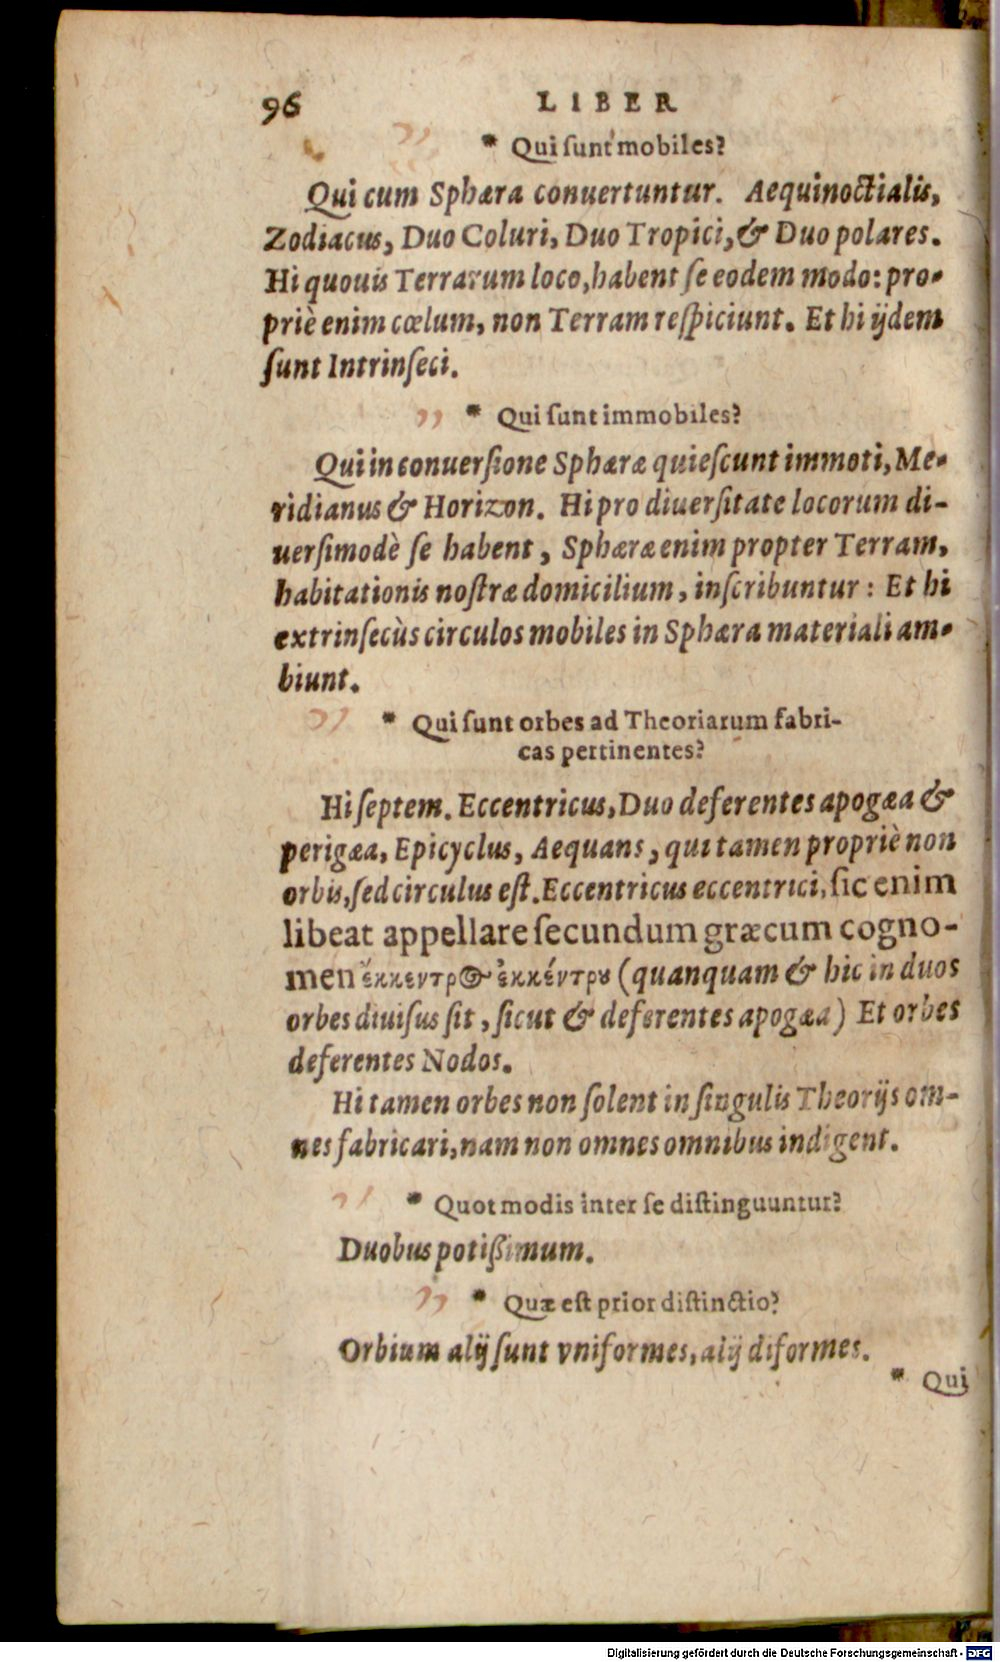 96 LIBER
* Qui ſunt mobiles?
Qui cum Sphæra conuertuntur. Aequinoctialis,
Zodiacus, Duo Coluri, Duo Tropici, & Duo polares.
Hi quouis Terrarum loco, habent ſe eodem modo: pro-
priè enim cœlum, non Terram reſpiciunt. Et hi ijdem
ſunt Intrinſeci.
„ * Qui ſunt immobiles?
Qui in conuerſione Sphæræ quieſcunt immoti, Me-
ridianus & Horizon. Hi pro diuerſitate locorum di-
uerſimodè ſe habent, Sphæræ enim propter Terram,
habitationis noſtræ domicilium, inſcribuntur: Et hi
extrinſecùs circulos mobiles in Sphæra materiali am-
biunt.
„ * Qui ſunt orbes ad Theoriarum fabri-
cas pertinentes?
Hi ſeptem. Eccentricus, Duo deferentes apogæa &
perigæa, Epicyclus, Aequans, qui tamen propriè non
orbis, ſed circulus eſt. Eccentricus eccentrici, ſic enim
libeat appellare ſecundum græcum cogno-
men ἔκκεντρος ἐκκέντρου (quanquam & hic in duos
orbes diuiſus ſit, ſicut & deferentes apogæa) Et orbes
deferentes Nodos.
Hi tamen orbes non ſolent in ſingulis Theorijs om-
nes fabricari, nam non omnes omnibus indigent.
„ * Quot modis inter ſe diſtinguuntur?
Duobus potißimum.
„ * Quæ eſt prior diſtinctio?
Orbium alij ſunt vniformes, alij diformes.
* Qui
Digitalisierung gefördert durch die Deutsche Forschungsgemeinschaft - DFG